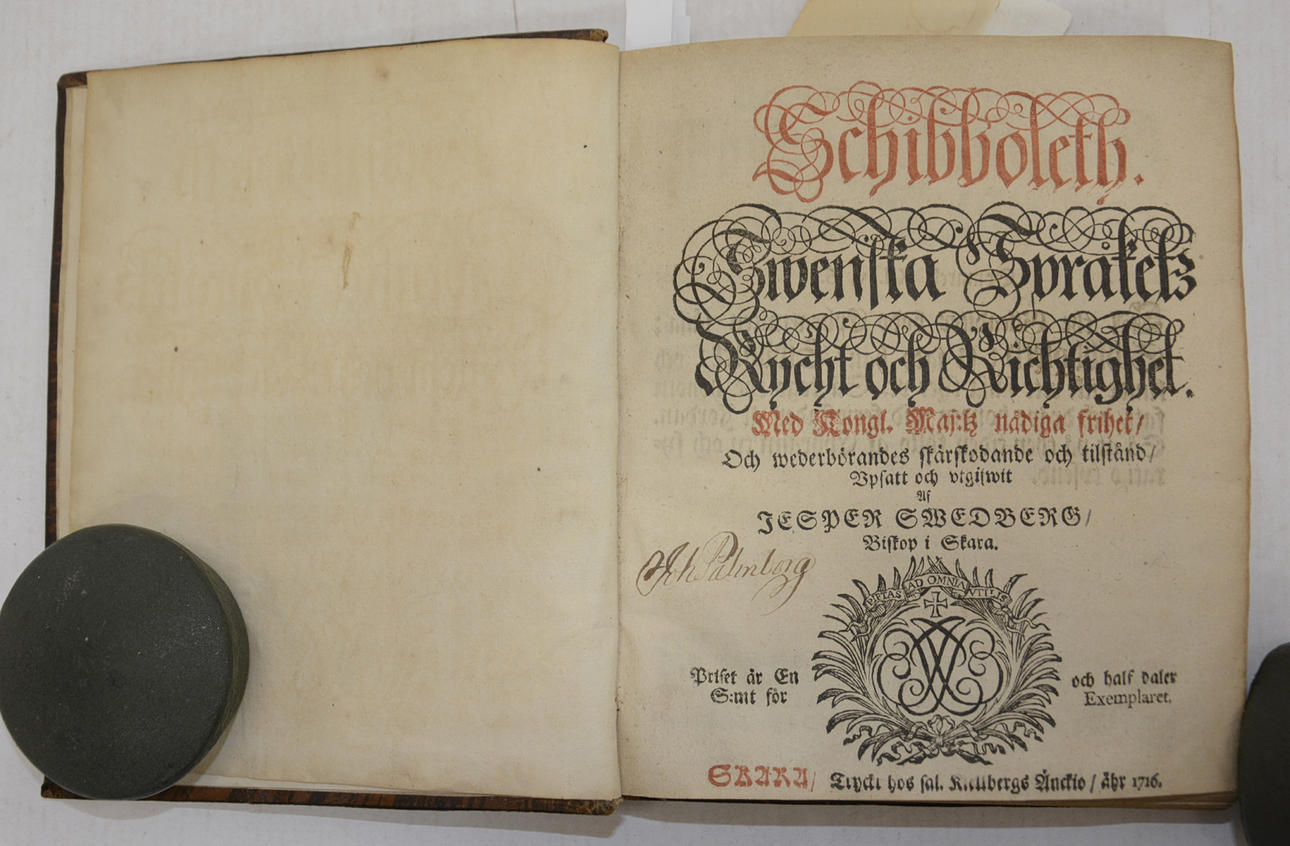 Schibboleth.
Swenska Språkets
Rycht och Richtighet.
Med Kongl. Maj:tz nådiga frihet/
Och wederbörandes skärskodande och tilstånd/
Vpsatt och vtgijwit
Af
JESPER SWEDBERG/
Biskop i Skara.
Joh Palmborg
PIETAS AD OMNIA UTILIS
Priset är En och half daler
S:mt för Exemplaret.
SKARA/ Tryckt hos sal. Kiellbergs Änckio / åhr 1716.